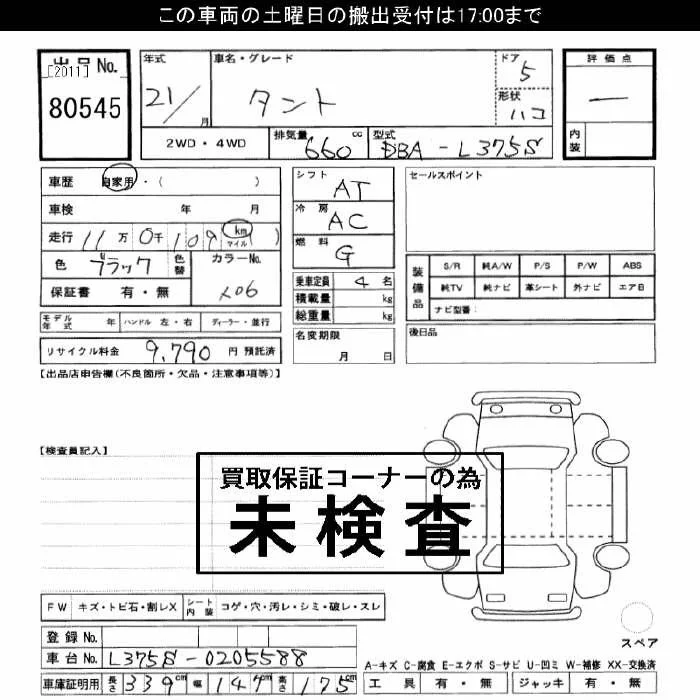 この車両の土曜日の搬出受付は17:00まで
出品No.
[2011]
80545
年式
21/
月
車名・グレード
タント
ドア
5
形状
ハコ
評価点
―
内装
2WD・4WD
排気量
660
cc
型式
DBA-L375S
車歴 自家用・( )
車検 年 月
走行 11万0千109 km マイル ( )
色 ブラック 色替
カラーNo.
X06
保証書 有・無
シフト
AT
冷房
AC
燃料
G
セールスポイント
乗車定員 4 名
積載量 kg
総重量 kg
装備品
S/R 純A/W P/S P/W ABS
純TV 純ナビ 革シート 外ナビ エアB
ナビ型番:
モデル年式 年 ハンドル 左・右 ディーラー・並行
リサイクル料金 9,790 円 預託済
名変期限
月 日
後日品
【出品店申告欄(不良箇所・欠品・注意事項等)】
【検査員記入】
買取保証コーナーの為
未検査
FW キズ・トビ石・割レX シート内装 コゲ・穴・汚レ・シミ・破レ・スレ
登録No.
車台No. L375S-0205588
スペア
A-キズ C-腐食 E-エクボ S-サビ U-凹ミ W-補修 XX-交換済
車庫証明用 長さ 339cm 幅 147cm 高さ 175cm
工具 有・無 ジャッキ 有・無